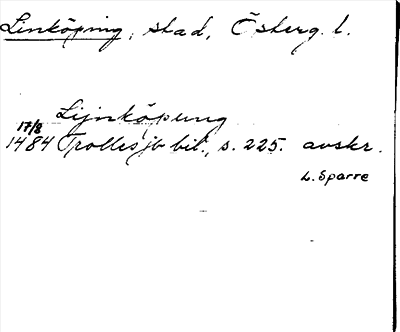 Linköping, stad, Österg. l.
Lijnköpung
17/8
1484 Trolles jb bil., s. 225. avskr.
L. Sparre